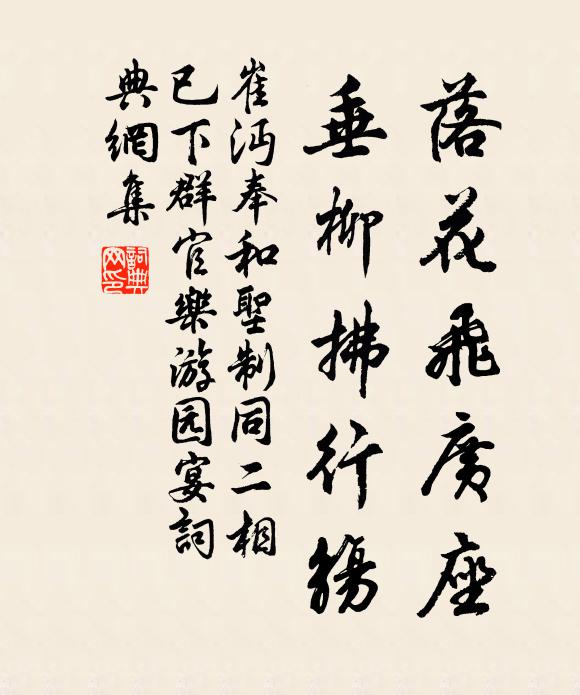 落花飛廣座
垂柳拂行觴
崔沔奉和聖制同二相
已下群官樂游园宴詞
典網集
詞典
网印